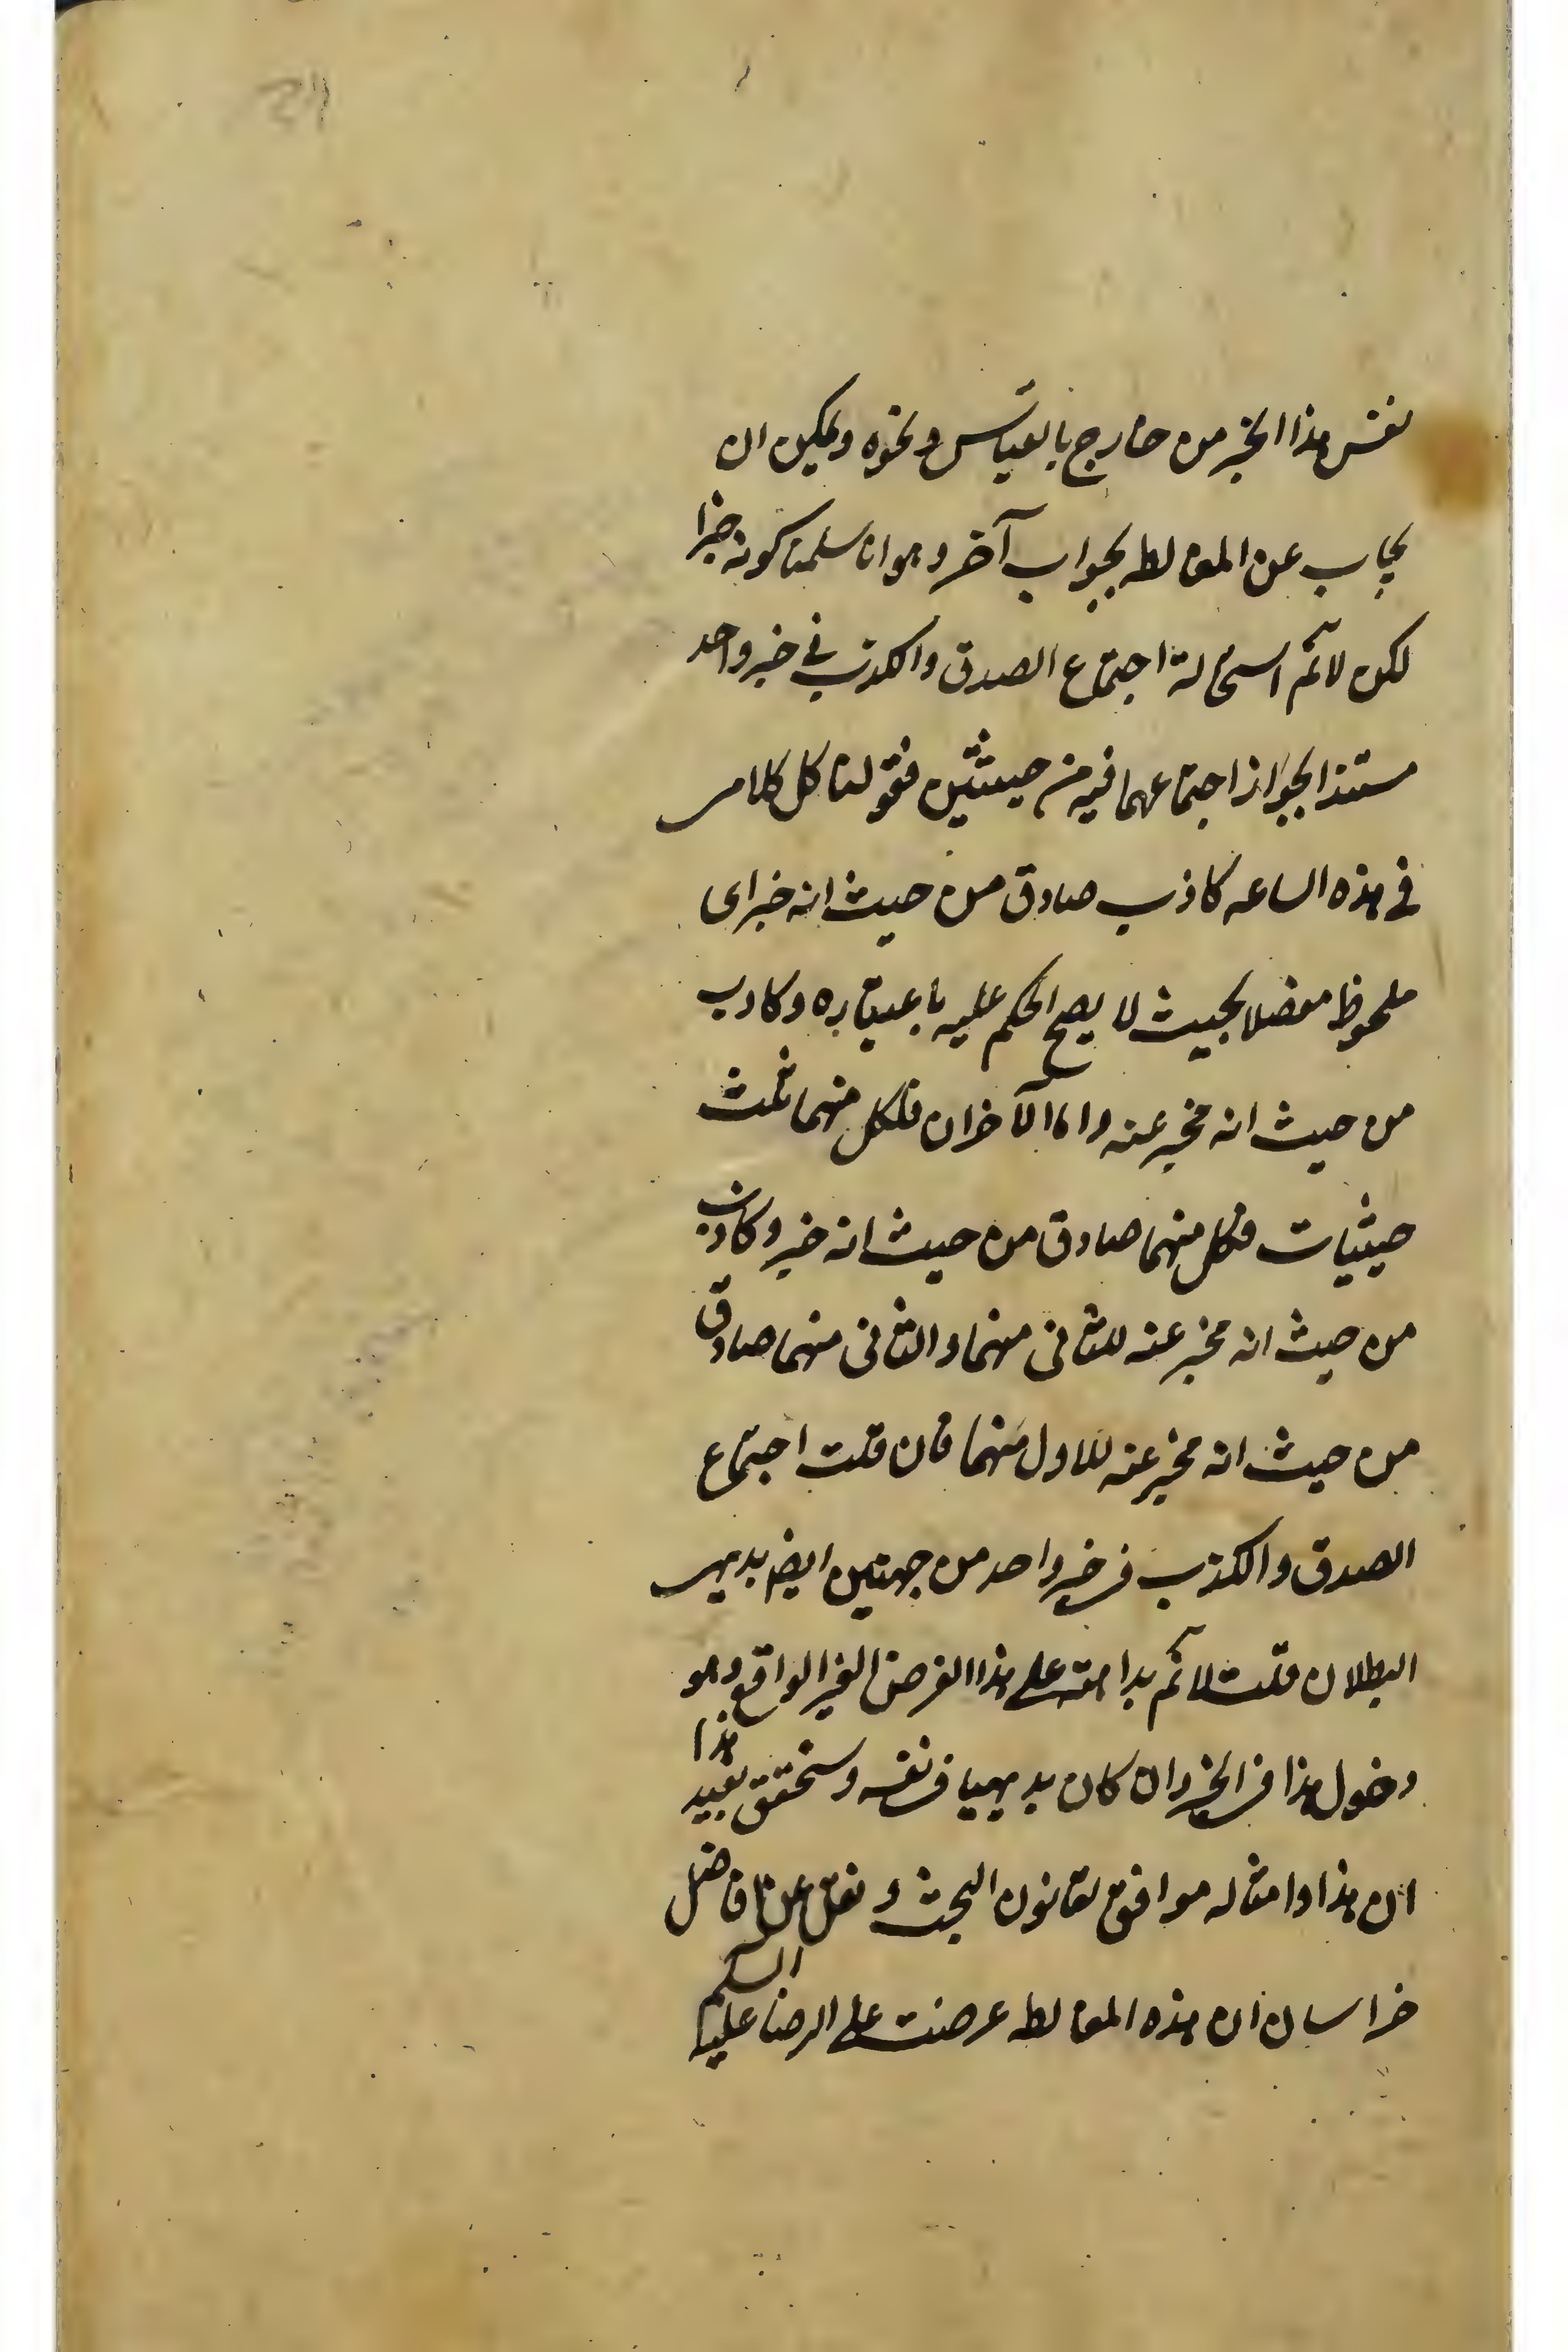 نفس هذا الخبر من خارج بالقياس ونحوه ويمكن ان
يجاب عن المغالطه بجواب آخر وهو انا سلمنا كونه خبرا
لكن لانم استحالة اجتماع الصدق والكذب في خبر واحد
مستندا لجواز اجتماعهما فيه من حيثيتين فقولنا كل كلامي
في هذه الساعه كاذب صادق من حيث انه خبر اى
ملحوظ مفصلا بحيث لا يصح الحكم عليه باعتباره وكاذب
من حيث انه مخبر عنه واما الآخران فلكل منهما ثلث
حيثيات فكل منهما صادق من حيث انه خبر وكاذب
من حيث انه مخبر عنه للثانى منهما والثانى منهما صادق
من حيث انه مخبر عنه للاول منهما فان قلت اجتماع
الصدق والكذب في خبر واحد من جهتين ايضا بديهي
البطلان قلت لانم بداهته على هذا الفرض الغير الواقع وهو
دخول هذا في الخبر وان كان بديهيا في نفسه وسنحقق بعيد هذا
ان هذا وامثاله موافق لقانون البحث ونقل عن فاضل
خراسان ان هذه المغالطه عرضت على الرضا عليه السلام